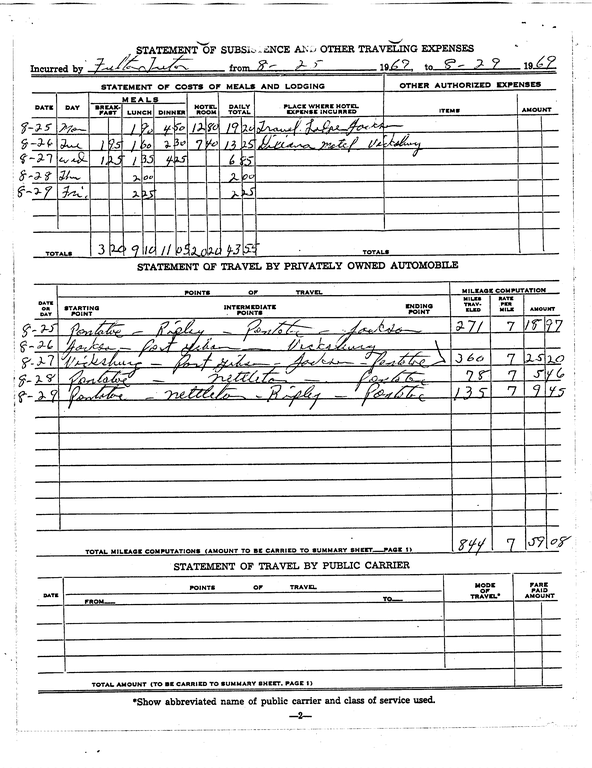 STATEMENT OF SUBSISTENCE AND OTHER TRAVELING EXPENSES
Incurred by Fulton Tutor from 8-25 1969 to 8-29 1969
STATEMENT OF COSTS OF MEALS AND LODGING OTHER AUTHORIZED EXPENSES
MEALS
DATE DAY BREAK-FAST LUNCH DINNER HOTEL ROOM DAILY TOTAL PLACE WHERE HOTEL EXPENSE INCURRED ITEMS AMOUNT
8-25 Mon 1 90 4 50 12 80 19 20 Travel Lodge Jackson
8-26 Tue 1 95 1 60 2 30 7 40 13 25 Motel Vicksburg
8-27 Wed 1 25 1 35 4 25 6 85
8-28 Thu 2 00 2 00
8-29 Fri. 2 25 2 25
TOTALS 3 20 9 10 11 05 20 20 43 55 TOTALS
STATEMENT OF TRAVEL BY PRIVATELY OWNED AUTOMOBILE
POINTS OF TRAVEL MILEAGE COMPUTATION
DATE OR DAY STARTING POINT INTERMEDIATE POINTS ENDING POINT MILES TRAV-ELED RATE PER MILE AMOUNT
8-25 Pontotoc - Ripley - Pontotoc - Jackson 271 7 18 97
8-26 Jackson - Port Gibson - Vicksburg
8-27 Vicksburg - Port Gibson - Jackson - Pontotoc 360 7 25 20
8-28 Pontotoc - Nettleton - Pontotoc 78 7 5 46
8-29 Pontotoc - Nettleton - Ripley - Pontotoc 135 7 9 45
TOTAL MILEAGE COMPUTATIONS (AMOUNT TO BE CARRIED TO SUMMARY SHEET—PAGE 1) 844 7 59 08
STATEMENT OF TRAVEL BY PUBLIC CARRIER
DATE POINTS OF TRAVEL MODE OF TRAVEL* FARE PAID AMOUNT
FROM— TO—
TOTAL AMOUNT (TO BE CARRIED TO SUMMARY SHEET, PAGE 1)
*Show abbreviated name of public carrier and class of service used.
—2—